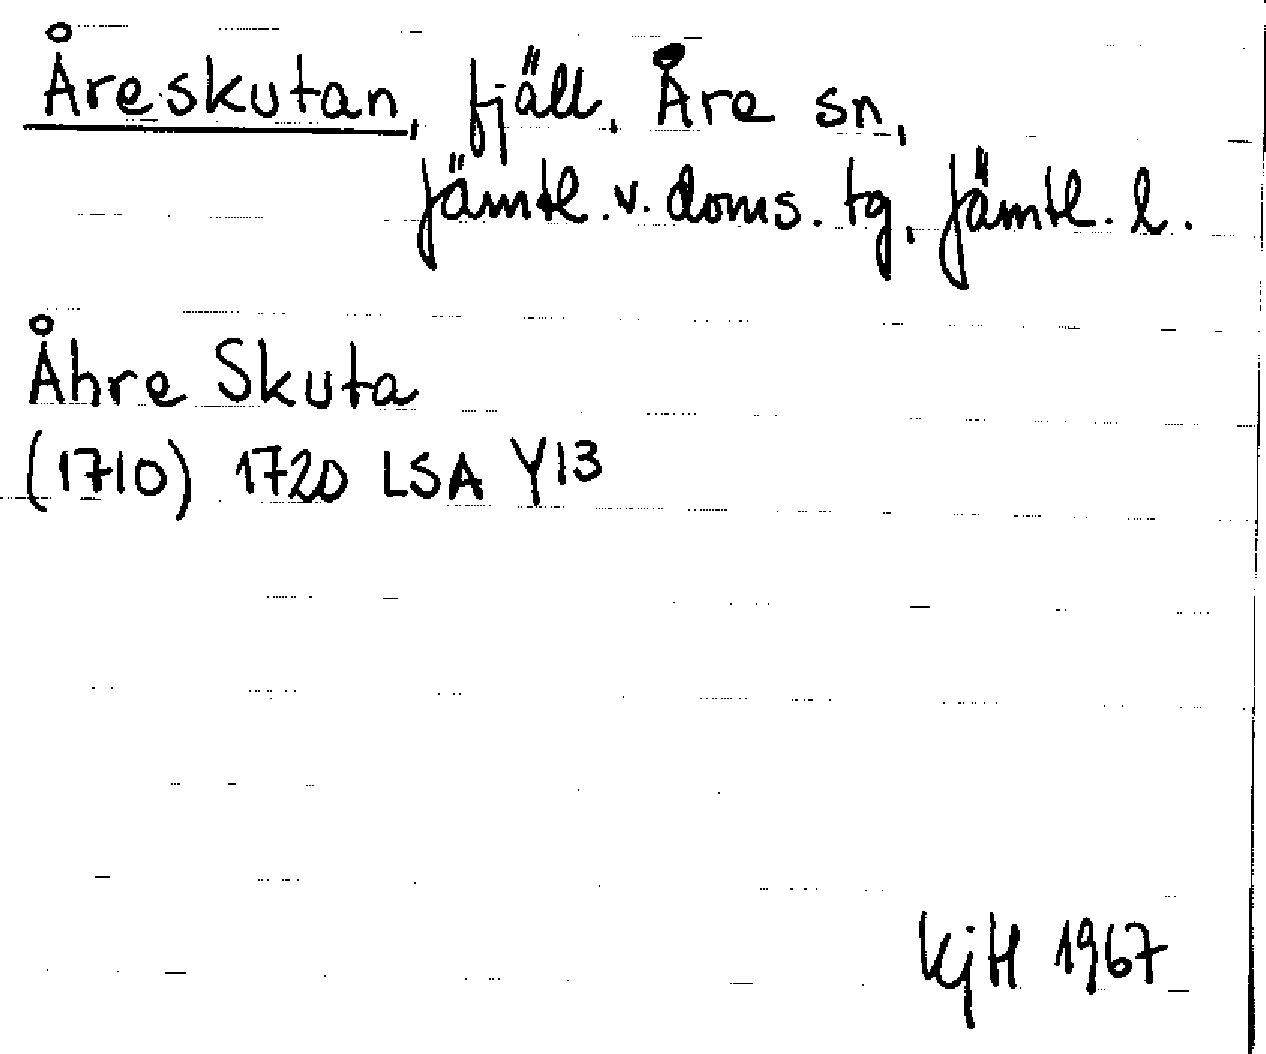 Åreskutan, fjäll, Åre sn,
Jämtl. v. doms. tg, Jämtl. l.
Åhre Skuta
(1710) 1720 LSA Y13
KjH 1967